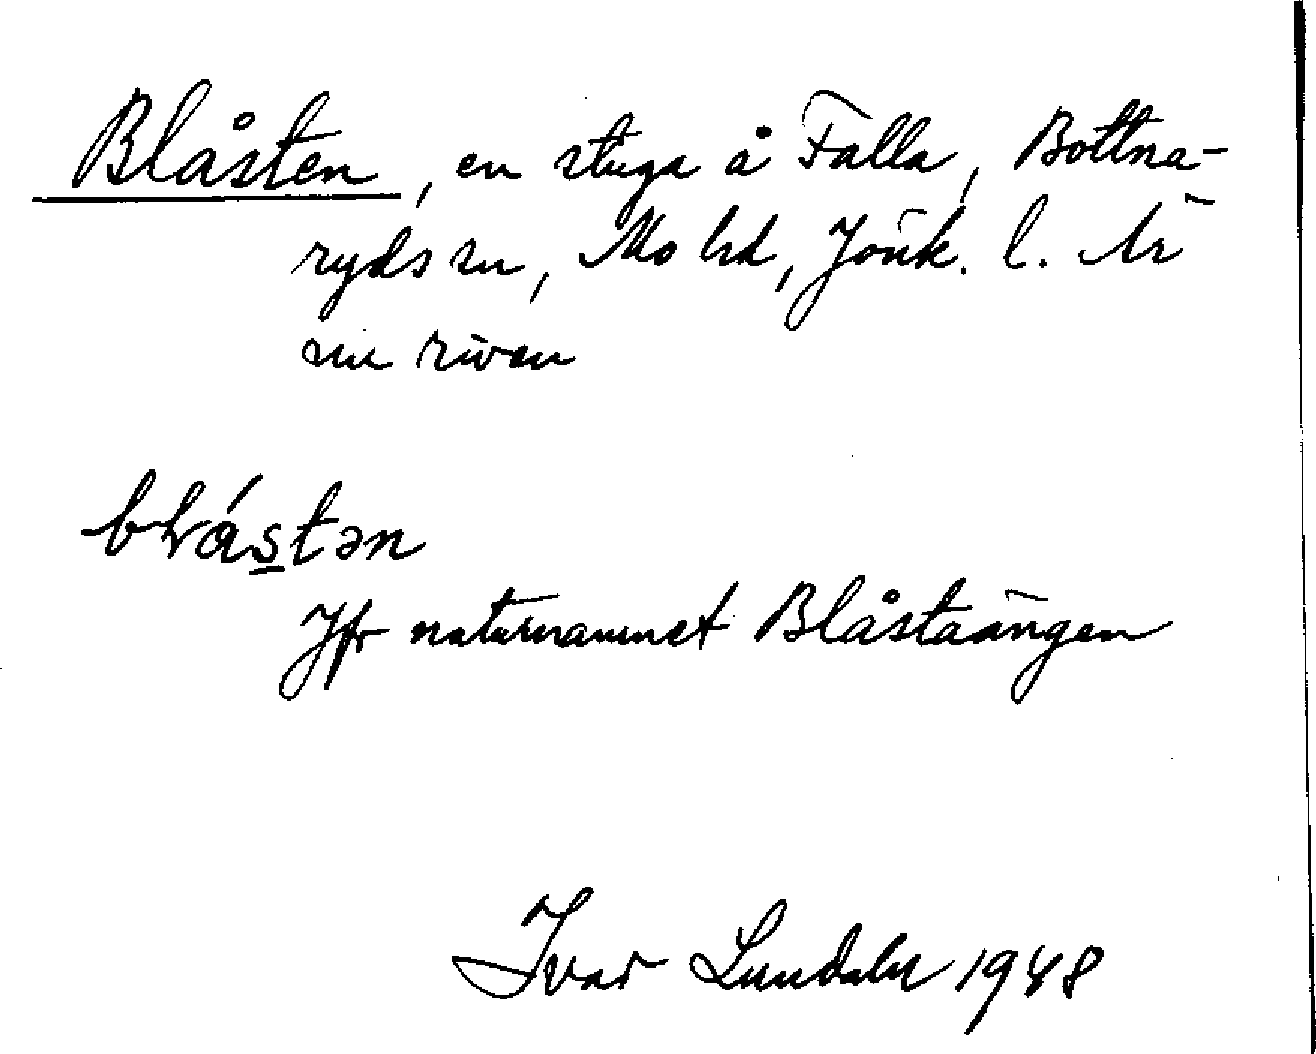 Blåsten, en stuga å Falla, Bottna-
ryds sn, Mo hd, Jönk. l. Är
nu riven
blá̱stən
Jfr naturnamnet Blåstaängen
Ivar Lundahl 1948